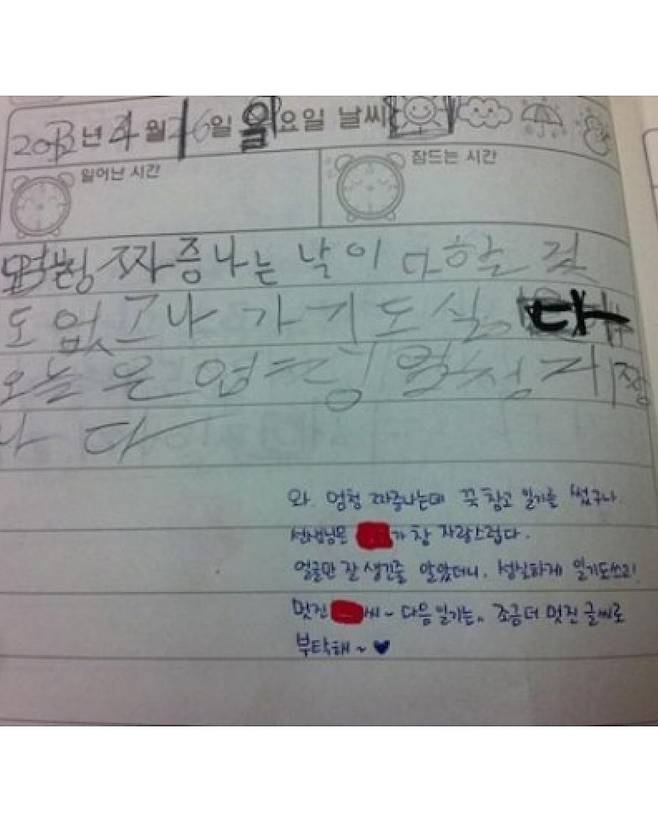 2012년 4월 16일 월요일 날씨
일어난 시간
잠드는 시간
엄청 짜증나는 날이다 할 것
도 없고 나가기도 실 다
오늘은 엄청 엄청 짜
나다
와. 엄청 짜증나는데 꾹 참고 일기를 썼구나.
선생님은 가 참 자랑스럽다.
얼굴만 잘 생긴줄 알았더니. 성실하게 일기도쓰고!
멋진 씨~ 다음 일기는,, 조금더 멋진 글씨로
부탁해~♥